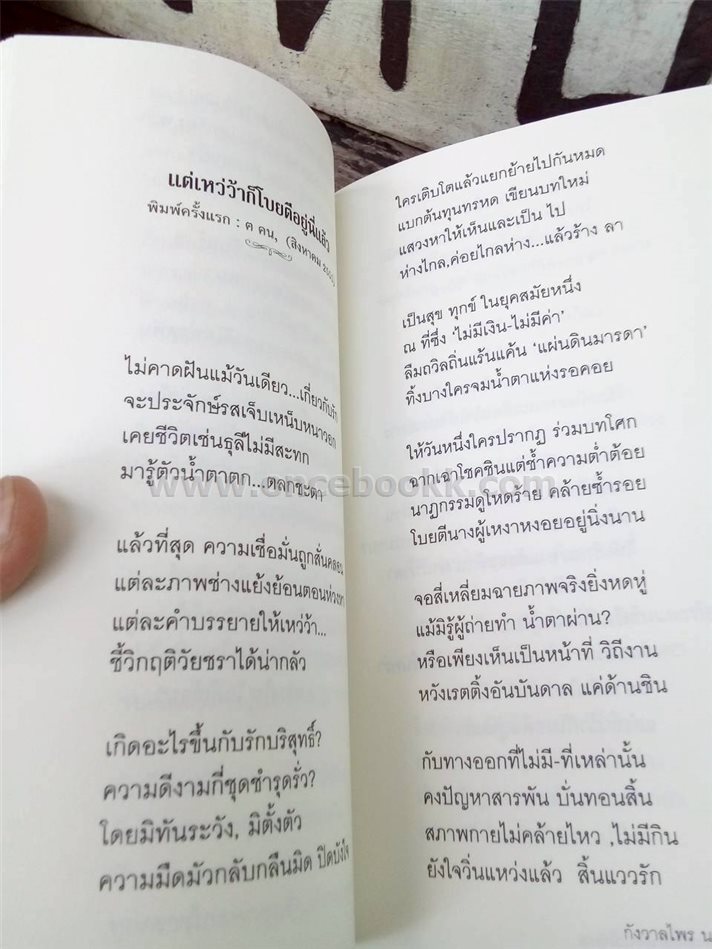 แด่เหว่ว้าก็โบยตีอยู่นี่แล้ว
พิมพ์ครั้งแรก : ฅ คน, (สิงหาคม
ไม่คาดฝันแม้วันเดียว...เกี่ยวกับรัก
จะประจักษ์รสเจ็บเหน็บหนาวอก
เคยชีวิตเช่นธุลีไม่มีสะทก
มารู้ตัวน้ำตาตก...ตลกชะตา
แล้วที่สุด ความเชื่อมั่นถูกสั่นคลอน
แต่ละภาพช่างแย้งย้อนตอนห่วงหา
แต่ละคำบรรยายให้เหว่ว้า...
ชี้วิกฤติวัยชราได้น่ากลัว
เกิดอะไรขึ้นกับรักบริสุทธิ์?
ความดีงามกี่ชุดชำรุดรั่ว?
โดยมิทันระวัง, มิตั้งตัว
ความมืดมัวกลับกลืนมิด ปิดบังใจ
ใครเติบโตแล้วแยกย้ายไปกันหมด
แบกต้นทุนทรหด เขียนบทใหม่
แสวงหาให้เห็นและเป็น ไป
ห่างไกล,ค่อยไกลห่าง...แล้วร้าง ลา
เป็นสุข ทุกข์ ในยุคสมัยหนึ่ง
ณ ที่ซึ่ง 'ไม่มีเงิน-ไม่มีค่า'
ลืมถวิลถิ่นแร้นแค้น 'แผ่นดินมารดา'
ทิ้งบางใครจมน้ำตาแห่งรอคอย
ให้วันหนึ่งใครปรากฏ ร่วมบทโศก
ฉากเฉาโชคชินแต่ช้ำความต่ำต้อย
นาฏกรรมดูโหดร้าย คล้ายซ้ำรอย
โบยตีนางผู้เหงาหงอยอยู่นิ่งนาน
จอสี่เหลี่ยมฉายภาพจริงยิ่งหดหู่
แม้มิรู้ผู้ถ่ายทำ น้ำตาผ่าน?
หรือเพียงเห็นเป็นหน้าที่ วิถีงาน
หวังเรตติ้งอันบันดาล แค่ด้านชิน
กับทางออกที่ไม่มี-ที่เหล่านั้น
คงปัญหาสารพัน บั่นทอนสิ้น
สภาพกายไม่คล้ายไหว ,ไม่มีกิน
ยังใจวิ่นแหว่งแล้ว สิ้นแววรัก
กังวาลไพร น
www.oncebookk.com